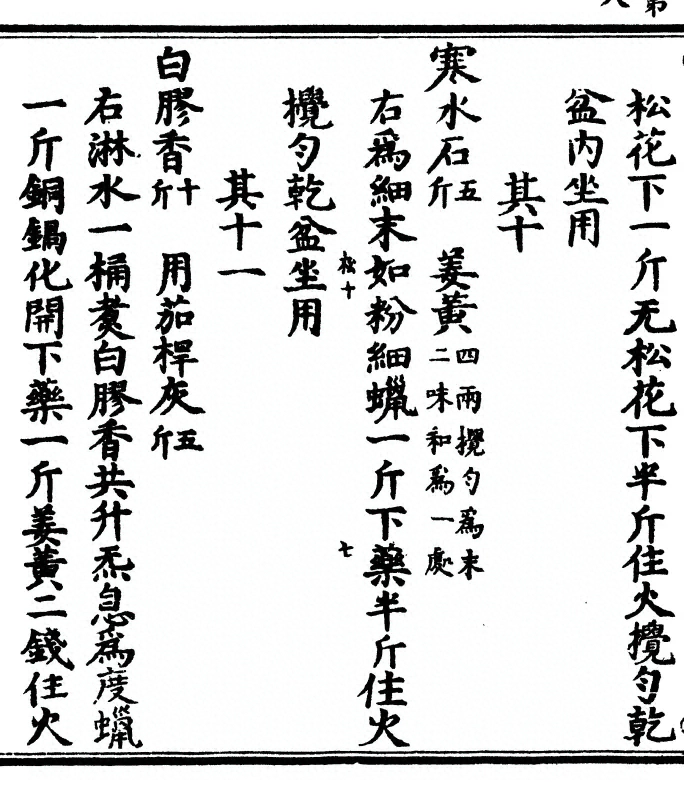 松花下一斤无松花下半斤住火攪勻乾
盆内坐用
其十
寒水石五斤　姜黄四兩攪勻爲末二味和爲一處
右爲細末如粉細蠟一斤下藥半斤住火
攪勻乾盆坐用
松十
七
其十一
白膠香十斤　用茄桿灰五斤
右淋水一桶煑白膠香共升炁息爲度蠟
一斤銅鍋化開下藥一斤姜黄二錢住火